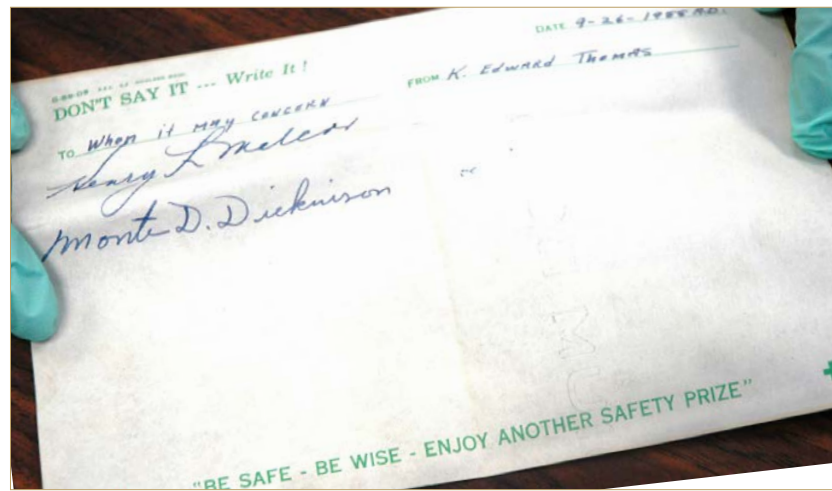 DATE 9-26-1955 A.D.
DON'T SAY IT --- Write It !
FROM K. Edward Thomas
TO Whom it may concern
Henry L
Monte D. Dickinson
"BE SAFE - BE WISE - ENJOY ANOTHER SAFETY PRIZE"